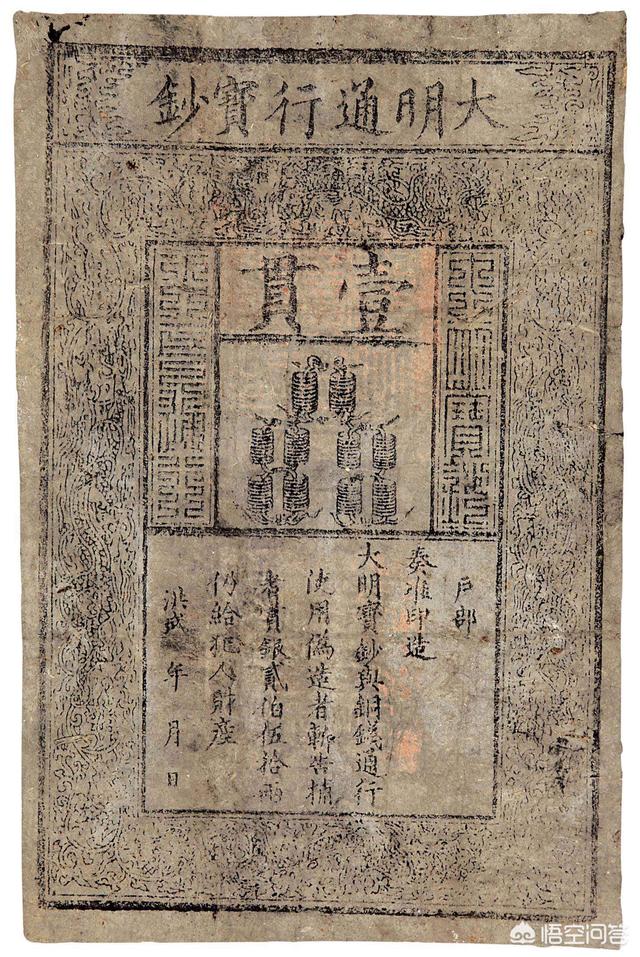 大明通行寶鈔
壹貫
大明寶鈔
天下通行
戶部
奏准印造
大明寶鈔與銅錢通行
使用僞造者斬告捕
者賞銀貳伯伍拾兩
仍給犯人財產
洪武 年 月 日
悟空问答